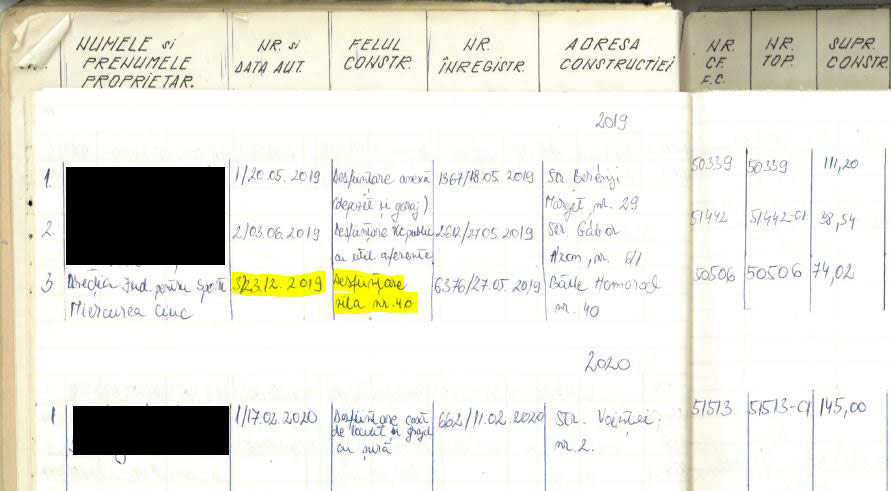 NUMELE si PRENUMELE PROPRIETAR.
NR. si DATA AUT.
FELUL CONSTR.
NR. ÎNREGISTR.
ADRESA CONSTRUCTIEI
NR. CF. F.C.
NR. TOP.
SUPR. CONSTR
2019
1. 1/20.05.2019 Desființare anexă 1367/18.05.2019 Str. Berényi 50339 50339 111,20
(depozit și garaj) Margit, nr. 29
2. 2/03.06.2019 Desființare 2612/27.05.2019 Str. Gábor 51442 51442-C1 38,54
cu util. aferente Áron, nr. 6/1
3 Direcția Jud. pentru Sport 3/23.12.2019 Desființare 6376/27.05.2019 Băile Homorod 50506 50506 74,02
Miercurea Ciuc vila nr. 40 nr. 40
2020
1 1/17.02.2020 Desființare casă 662/11.02.2020 Str. Voinței, 51513 51513-C1 145,00
de locuit și grajd nr. 2.
cu șură